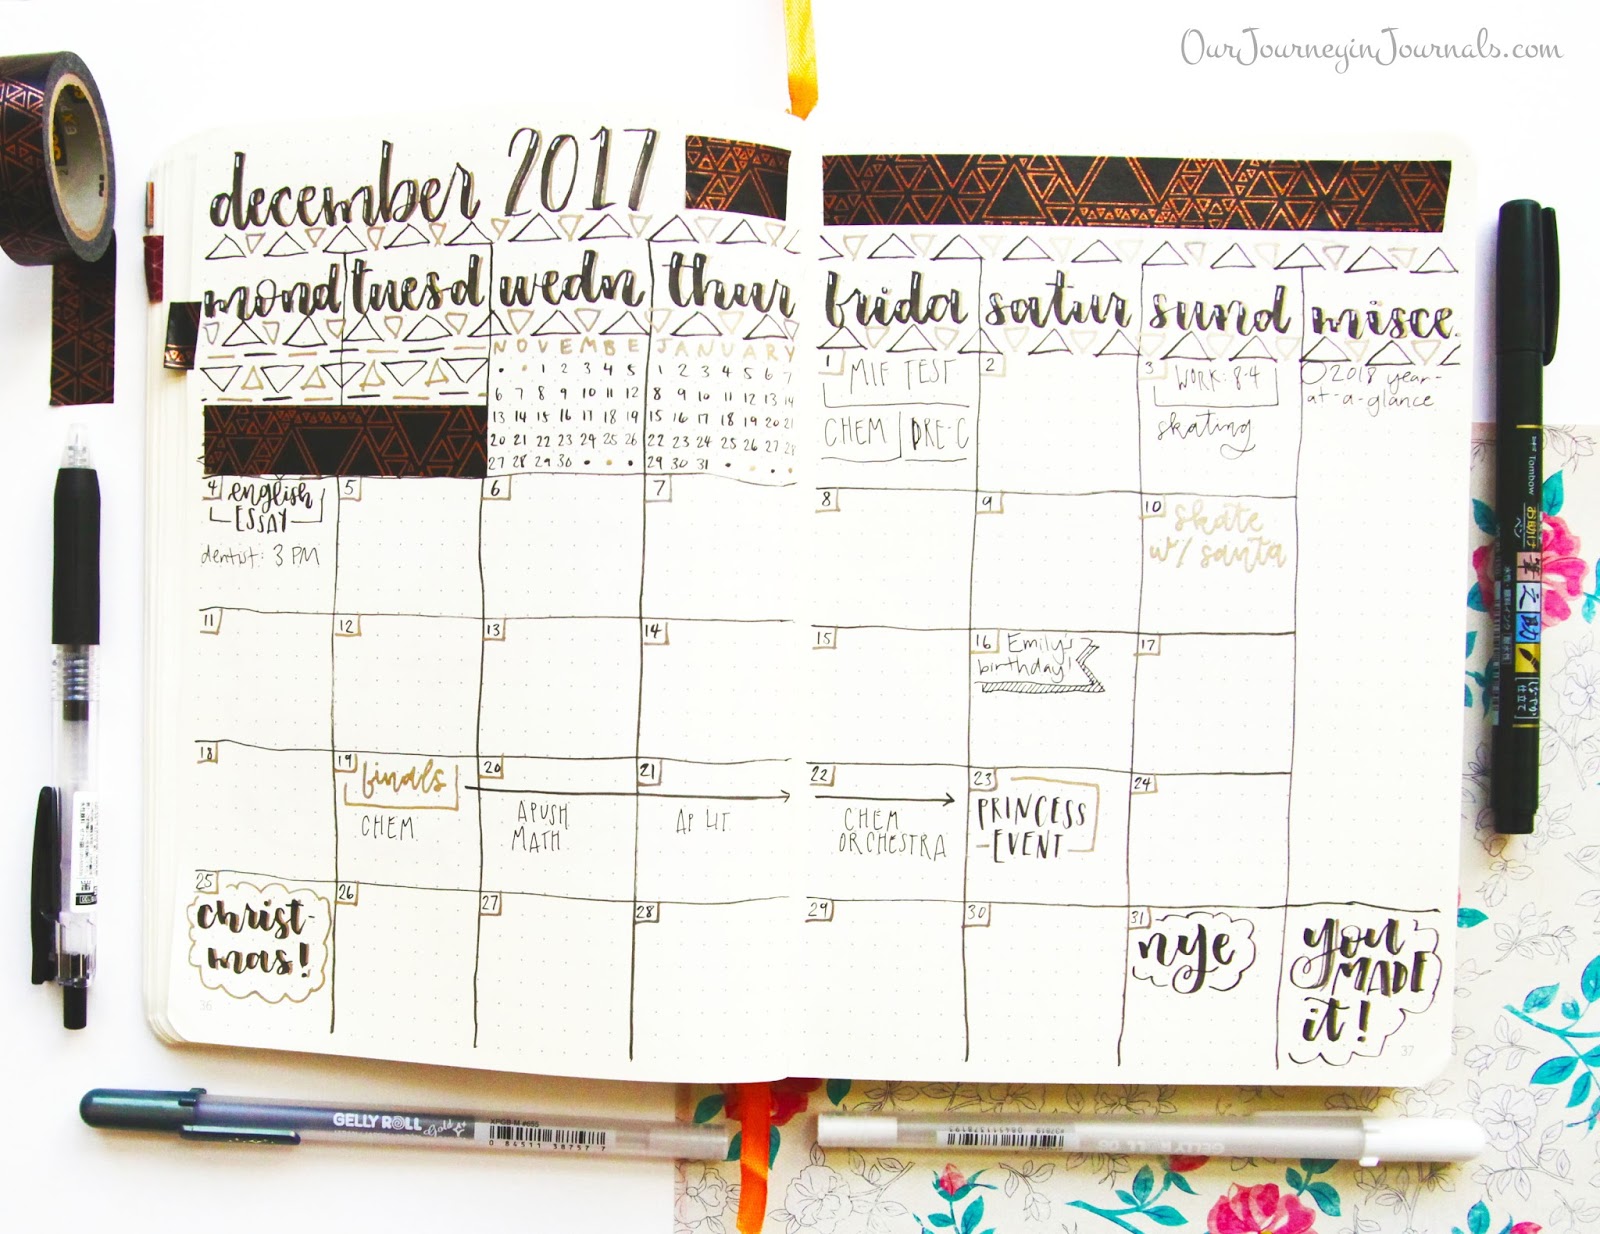 OurJourneyinJournals.com
december 2017
mond tuesd wedn thur frida satur sund misce.
NOVEMBE
1 2 3 4 5
6 7 8 9 10 11 12
13 14 15 16 17 18 19
20 21 22 23 24 25 26
27 28 29 30
JANUARY
1 2 3 4 5 6 7
8 9 10 11 12 13 14
15 16 17 18 19 20 21
22 23 24 25 26 27 28
29 30 31
1
MIF TEST
CHEM PRE-C
2
3
WORK: 8-4
skating
2018 year-
at-a-glance
4
english
ESSAY
dentist: 3 PM
5
6
7
8
9
10
skate
w/ santa
11
12
13
14
15
16
Emily's
birthday!
17
18
19
finals
CHEM
20
APUSH
MATH
21
AP LIT
22
CHEM
ORCHESTRA
23
PRINCESS
-EVENT-
24
25
christ-
mas!
26
27
28
29
30
31
nye
you
MADE
it!
36
37
Tombow
GELLY ROLL gold
XPGB-M #655
0 84511 38757 7